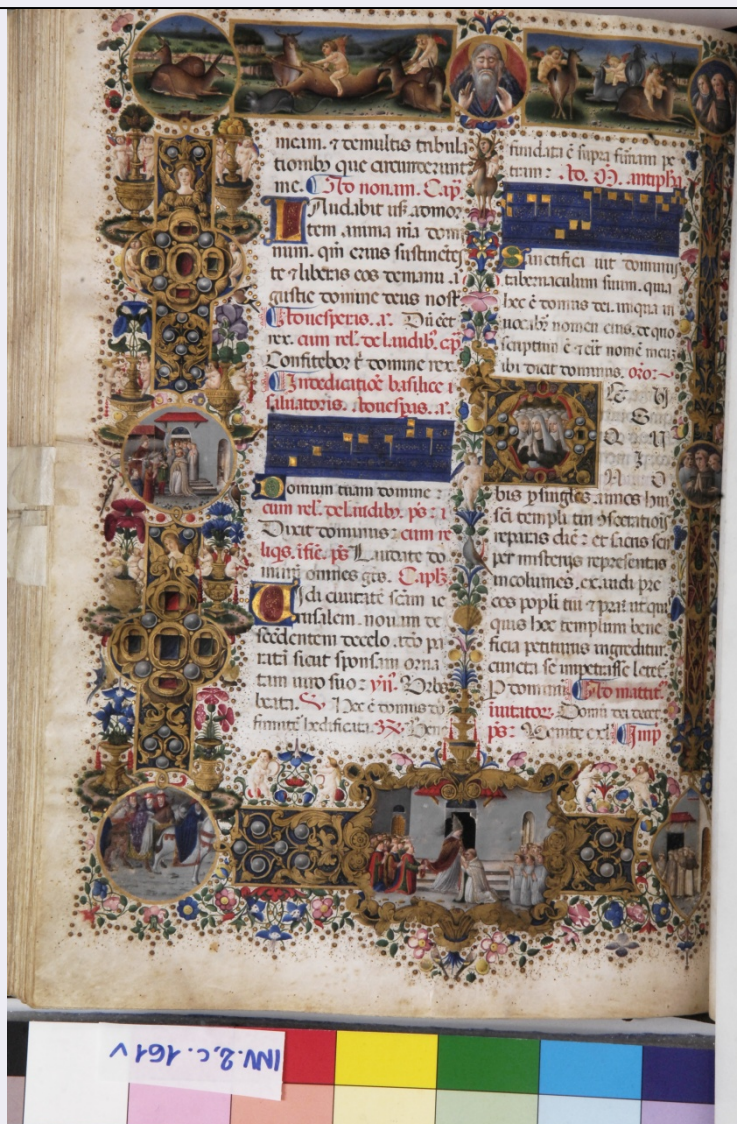 meam. ⁊ de multis tribula
tionibꝫ que circumdederunt
me. Ad nonam. Cap.
Laudabit usqꝫ ad mor
tem anima mea dom
num. qm̄ eruis sustinētes
te ⁊ liberas eos de manu ā
gustie domine deus nost
Ad vesperas. a. Dū eēt
rex. cum rel. de laudibꝫ. cap
Confitebor tꝫ domine rex.
In dedicatiōe basilice
saluatoris. Ad vesp̄as. a.
Domum tuam domine:
cum rel. de laudibꝫ. ps:
Dixit dominus: cum re
liqs. ifīe. ps Laudate do
minū omnes gēs. Capl.
Uidi ciuitatē scām ie
rusalem. nouam de
scēdentem de celo. a dō pa
ratā sicut sponsam orna
tam uiro suo: ỹ. Urbs
beata. ℣. Hec ē domus dn̄i
firmitē hedificata. ℟. Bene
fundata ē supra firmam pe
tram: Ad. M. antiph̄a
Sanctifica uit dominus
tabernaculum suum. quia
hec ē domus dei. in qua in
uocabꝫ nomen eius. de quo
scriptum ē ⁊ erit nomē meū
ibi dicit dominus. oro:
bis p singlos annos huiꝰ
sc̄i templi tui ꝯsecratiōis
reparas diē: et sacris sem
per misterijs representas
incolumes. exaudi pre
ces popli tui ⁊ prā ut qui
quis hoc templum bene
ficia petiturus ingreditur.
cuncta se impetrasse letet
P dominū Ad matut.
inuitator. Domū dei decet
ps: Uenite ex. Imp
INV.2, c.161v